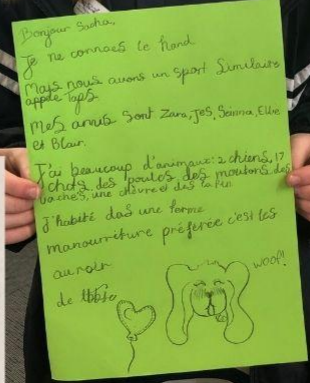 Bonjour Sacha,
Je ne connaes le hand
Mais nous avons un sport Similaire
appele Taps
mes amis sont Zara, Jes, Seinna, Ellie
et Blair.
J'ai beaucoup d'animaux: 2 chiens, 17
chats des poules des moutons des
vaches, une chèvre et des lapin
J'habité das une ferme
manourriture préferée c'est les
auroir
de
woof!